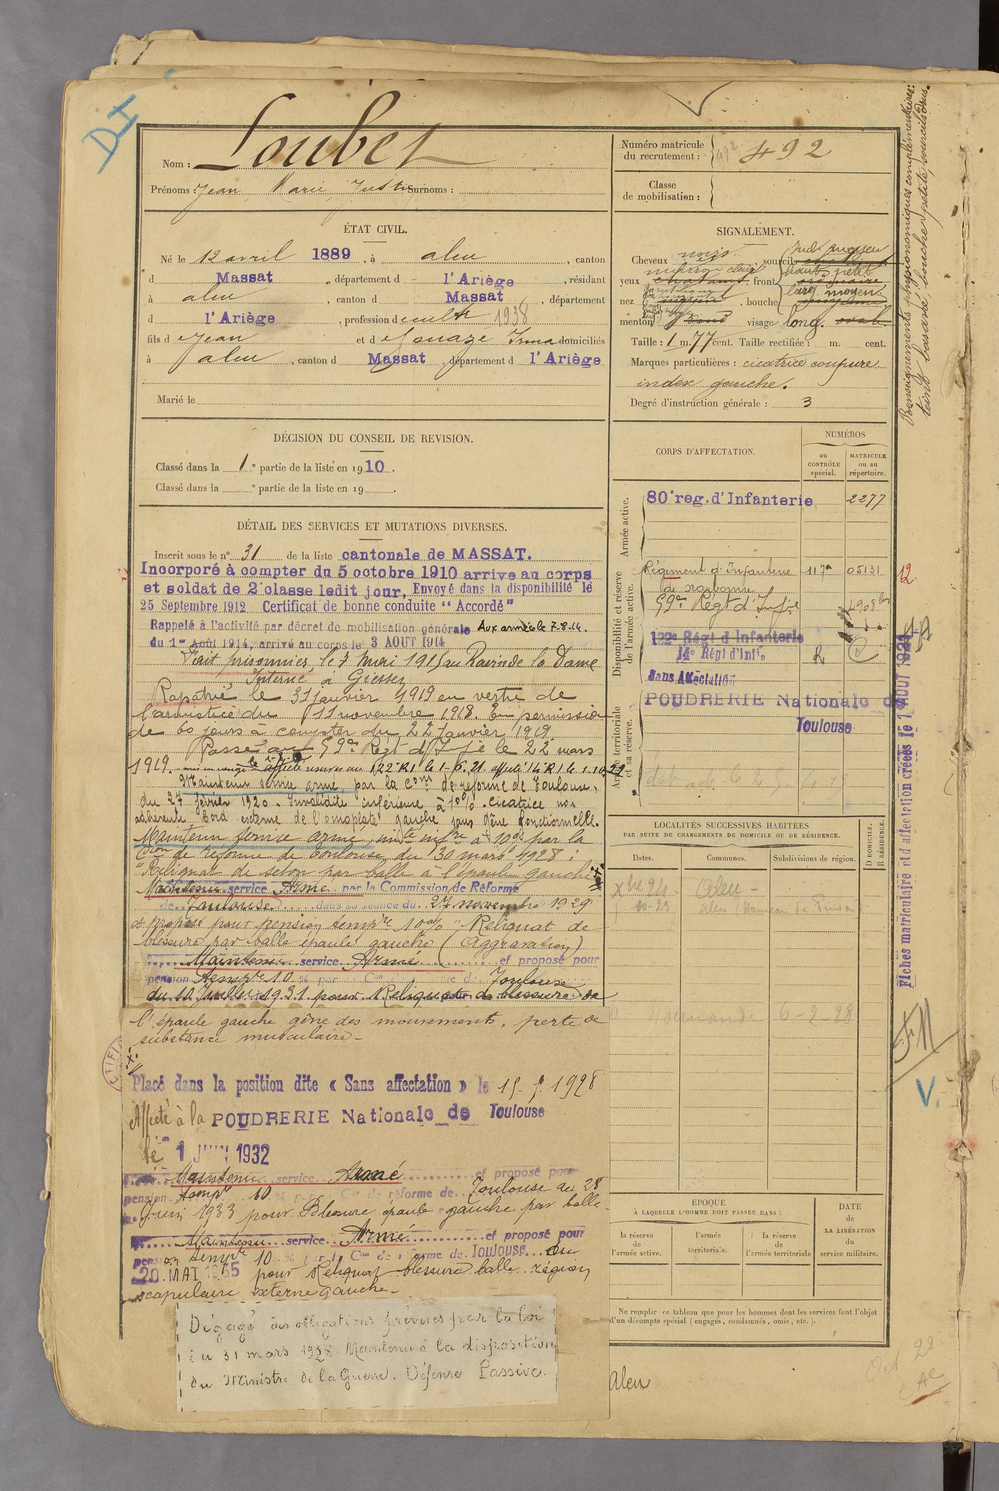 DI
Nom : Loubet
Prénoms : Jean Marie Justin Surnoms :
ÉTAT CIVIL.
Né le 12 avril 1889, à aleu, canton
d Massat, département d l'Ariège, résidant
à aleu, canton d Massat, département
d l'Ariège, profession d cultr 1938
fils d e Jean et d e domiciliés
à aleu, canton d Massat, département d l'Ariège
Marié le
DÉCISION DU CONSEIL DE REVISION.
Classé dans la 1e partie de la liste en 1910.
Classé dans la e partie de la liste en 19 .
DÉTAIL DES SERVICES ET MUTATIONS DIVERSES.
Inscrit sous le n° 31 de la liste cantonale de MASSAT.
Incorporé à compter du 5 octobre 1910 arrive au corps
et soldat de 2e classe ledit jour, Envoyé dans la disponibilité le
25 Septembre 1912 Certificat de bonne conduite "Accordé"
Rappelé à l'activité par décret de mobilisation générale Aux armées le 7.8.14.
du 1er Août 1914, arrivé au corps le 3 AOUT 1914
Fait prisonnier, le 7 mai 1915 au Ravin de la Dame
Interné à Giessen
Rapatrié le 31 Janvier 1919 en vertu de
l'armistice du 11 novembre 1918. En permission
de 60 jours à compter du 22 Janvier 1919.
Passé au 59e Régt d'Infie le 22 mars
1919. affecté réserve au 122e RI le 1-6.21. affecté 14e RI le 1.10.
Maintenu service armé par la Con de réforme de Toulouse,
du 27 février 1920. Invalidité inférieure à 10% cicatrice non
adhérente bord externe de l'omoplate gauche sans gêne fonctionnelle.
Maintenu service armé, par la
Con de réforme de Toulouse du 30 mars 1928 :
Reliquat de séton par balle à l'épaule gauche
Maintenu service Armé par la Commission de Réforme
de Toulouse dans sa séance du 27 novembre 1929
et proposé pour pension tempre 10% "Reliquat de
blessure par balle épaule gauche (Aggravation)
Maintenu service Armé et proposé pour
pension tempre 10 % par Con de Toulouse
du 10 Juillet 1931 pour Reliquat de blessure de
l'épaule gauche gêne des mouvements, perte de
substance musculaire -
Placé dans la position dite « Sans affectation » le 15.7.1928
Affecté à la POUDRERIE Nationale de Toulouse
le 1 JUIN 1932
Maintenu service Armé et proposé pour
pension tempre 10 % par Con de réforme de Toulouse du 28
Juin 1933 pour Blessure épaule gauche par balle
Maintenu service Armé et proposé pour
pension tempre 10 % par la Con de réforme de Toulouse du
20 MAI 1935 pour Reliquat blessure balle région
scapulaire externe gauche -
Dégagé des obligations prévues par la loi
du 31 mars 1928 Maintenu à la disposition
du Ministre de la Guerre. Défense Passive.
Numéro matricule
du recrutement : 492
Classe
de mobilisation :
SIGNALEMENT.
Cheveux noirs, sourcils
yeux marron clair, front haut petit
nez, bouche large moyen
menton rond visage long. ovale
Taille : 1 m. 77 cent. Taille rectifiée : m. cent.
Marques particulières : cicatrice coupure
index gauche.
Degré d'instruction générale : 3
CORPS D'AFFECTATION.
NUMÉROS
AU CONTRÔLE spécial.
MATRICULE ou au répertoire.
Armée active.
80e reg. d'Infanterie 2277
Disponibilité et réserve de l'armée active.
Régiment d'Infanterie 117e 05131
de Narbonne
59e Régt d'Infie
122e Régt d'Infanterie
14e Régt d'Infie
Sans Affectation
Armée territoriale et sa réserve.
POUDRERIE Nationale de
Toulouse
LOCALITÉS SUCCESSIVES HABITÉES
PAR SUITE DE CHANGEMENTS DE DOMICILE OU DE RÉSIDENCE.
Dates.
Communes.
Subdivisions de région.
D DOMICILE. R RÉSIDENCE.
Xbre 24 - Aleu -
6-2-28
EPOQUE
À LAQUELLE L'HOMME DOIT PASSER DANS :
la réserve de l'armée active.
l'armée territoriale.
la réserve de l'armée territoriale
DATE
de
LA LIBÉRATION
du
service militaire.
Ne remplir ce tableau que pour les hommes dont les services font l'objet
d'un décompte spécial (engagés, condamnés, omis, etc.).
Aleu
Renseignements physionomiques complémentaires:
teint basané, bouche petite, sourcils drus.
12
Fiches matriculaire et d'affectation créées le 1 AOUT 1921
V.